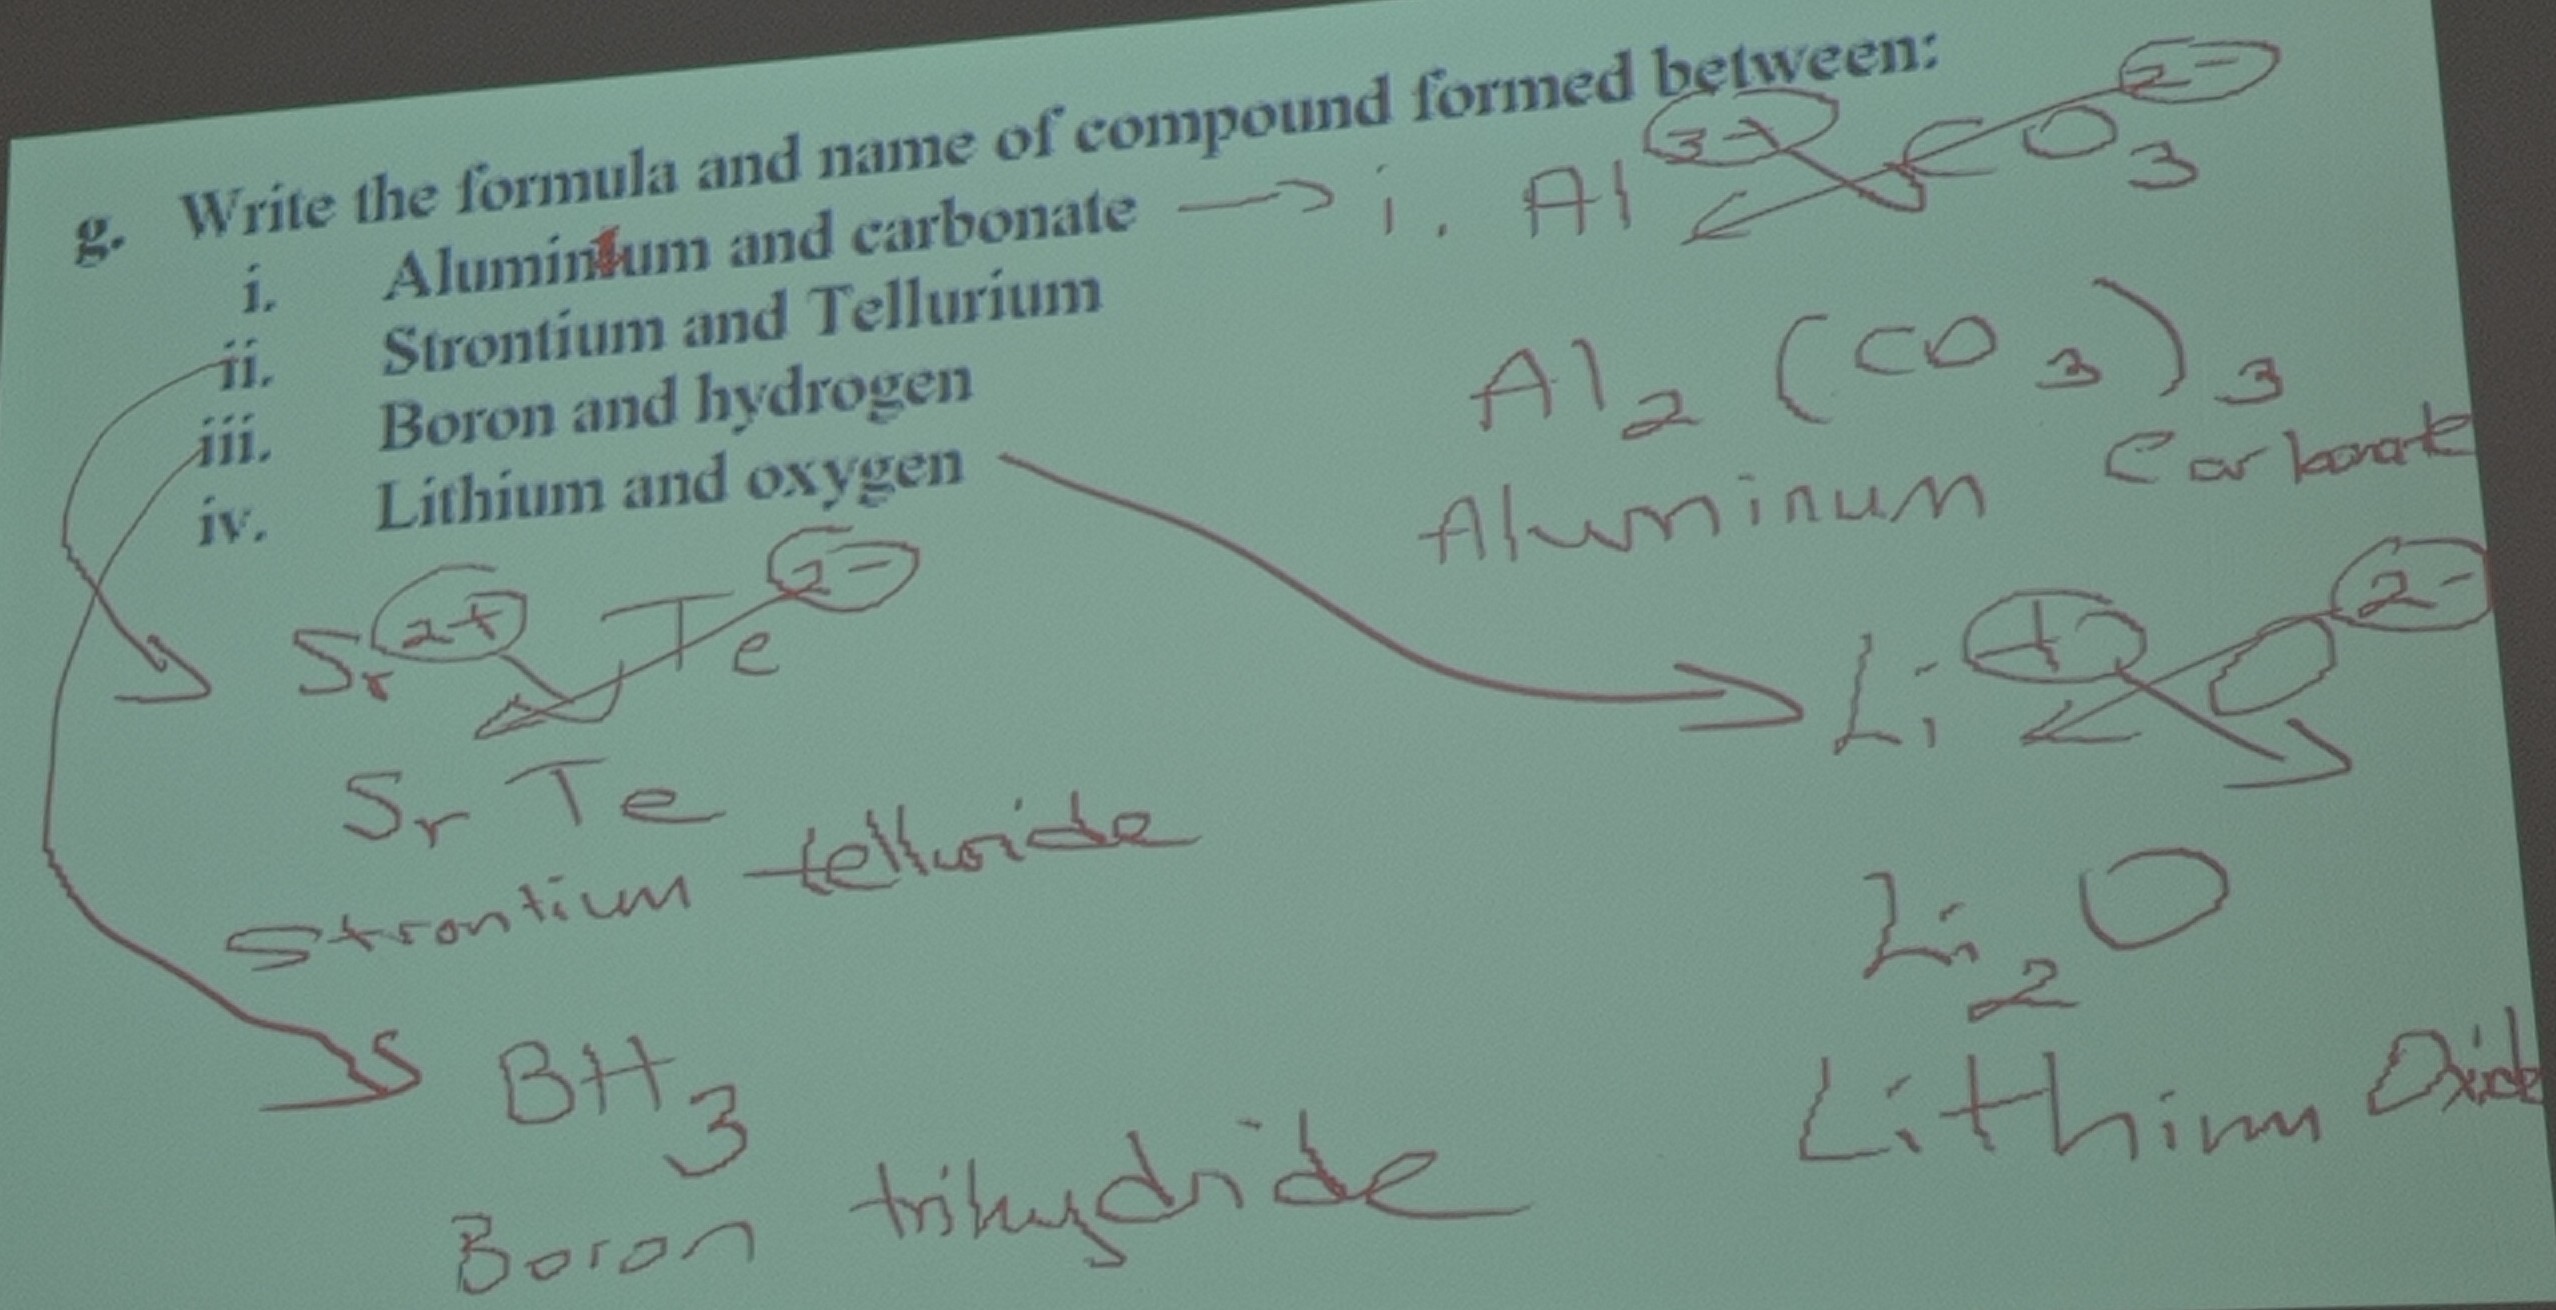 g. Write the formula and name of compound formed between:
i. Aluminium and carbonate → i. Al 3+ CO3 2-
ii. Strontium and Tellurium
iii. Boron and hydrogen
iv. Lithium and oxygen
Al2 (CO3)3
Aluminum Carbonate
Sr 2+ Te 2-
Sr Te
Strontium telluride
BH3
Boron trihydride
Li + O 2-
Li2O
Lithium Oxide